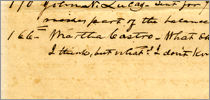 170 John N. Lucas. Sent for
never, part of the balance
166= Martha Castro - What do
I think, but what? I don't kn